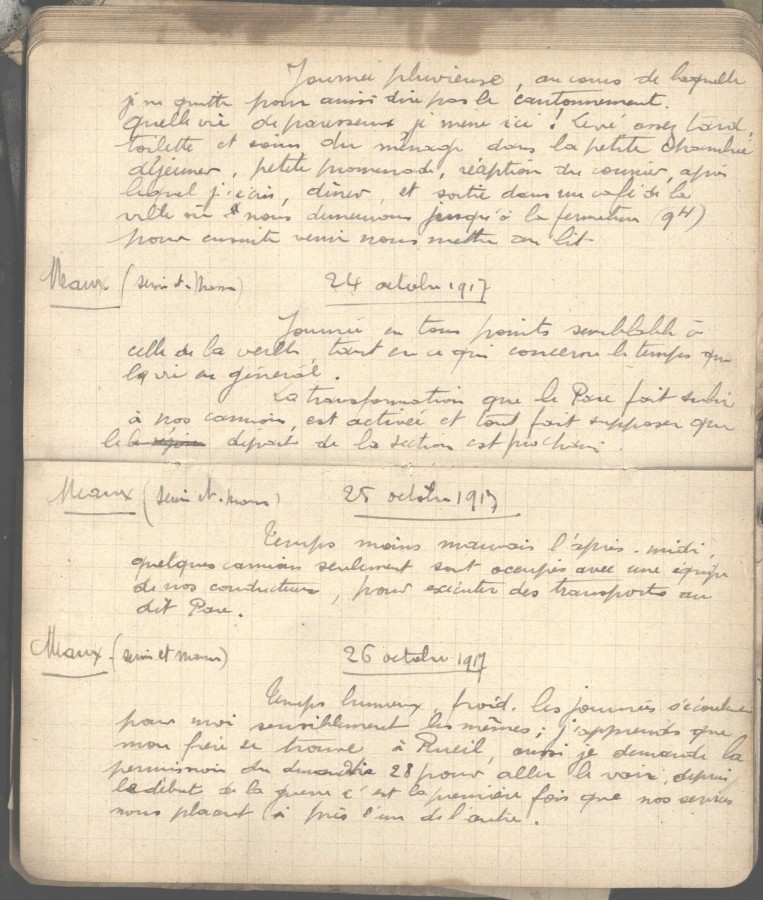 Journée pluvieuse, au cours de laquelle
je ne quitte pour ainsi dire pas le cantonnement.
quelle vie de paresseux je mene ici ! Levé assez tard,
toilette et soins du ménage dans la petite chambre
déjeuner, petite promenade, réception du courrier, après
lequel j'écris, dîner, et sortie dans un café de la
ville où nous demeurons jusqu'à la fermeture (9H)
pour ensuite venir nous mettre au lit
Meaux (Seine et Marne) 24 octobre 1917
Journée en tous points semblable à
celle de la veille, tant en ce qui concerne le temps que
la vie en général.
La transformation que le Parc fait subir
à nos camions, est activée et tout fait supposer que
le départ de la section est prochain.
Meaux (Seine et Marne) 25 octobre 1917
Temps moins mauvais l'après-midi,
quelques camions seulement sont occupés avec une équipe
de nos conducteurs, pour exécuter des transports au
dit Parc.
Meaux (Seine et Marne) 26 octobre 1917
Temps brumeux, froid. les journées s'écoulent
pour moi sensiblement les mêmes; j'apprends que
mon frère se trouve à Rueil, aussi je demande la
permission du dimanche 28 pour aller le voir, depuis
le début de la guerre c'est la première fois que nos services
nous placent si près l'un de l'autre.